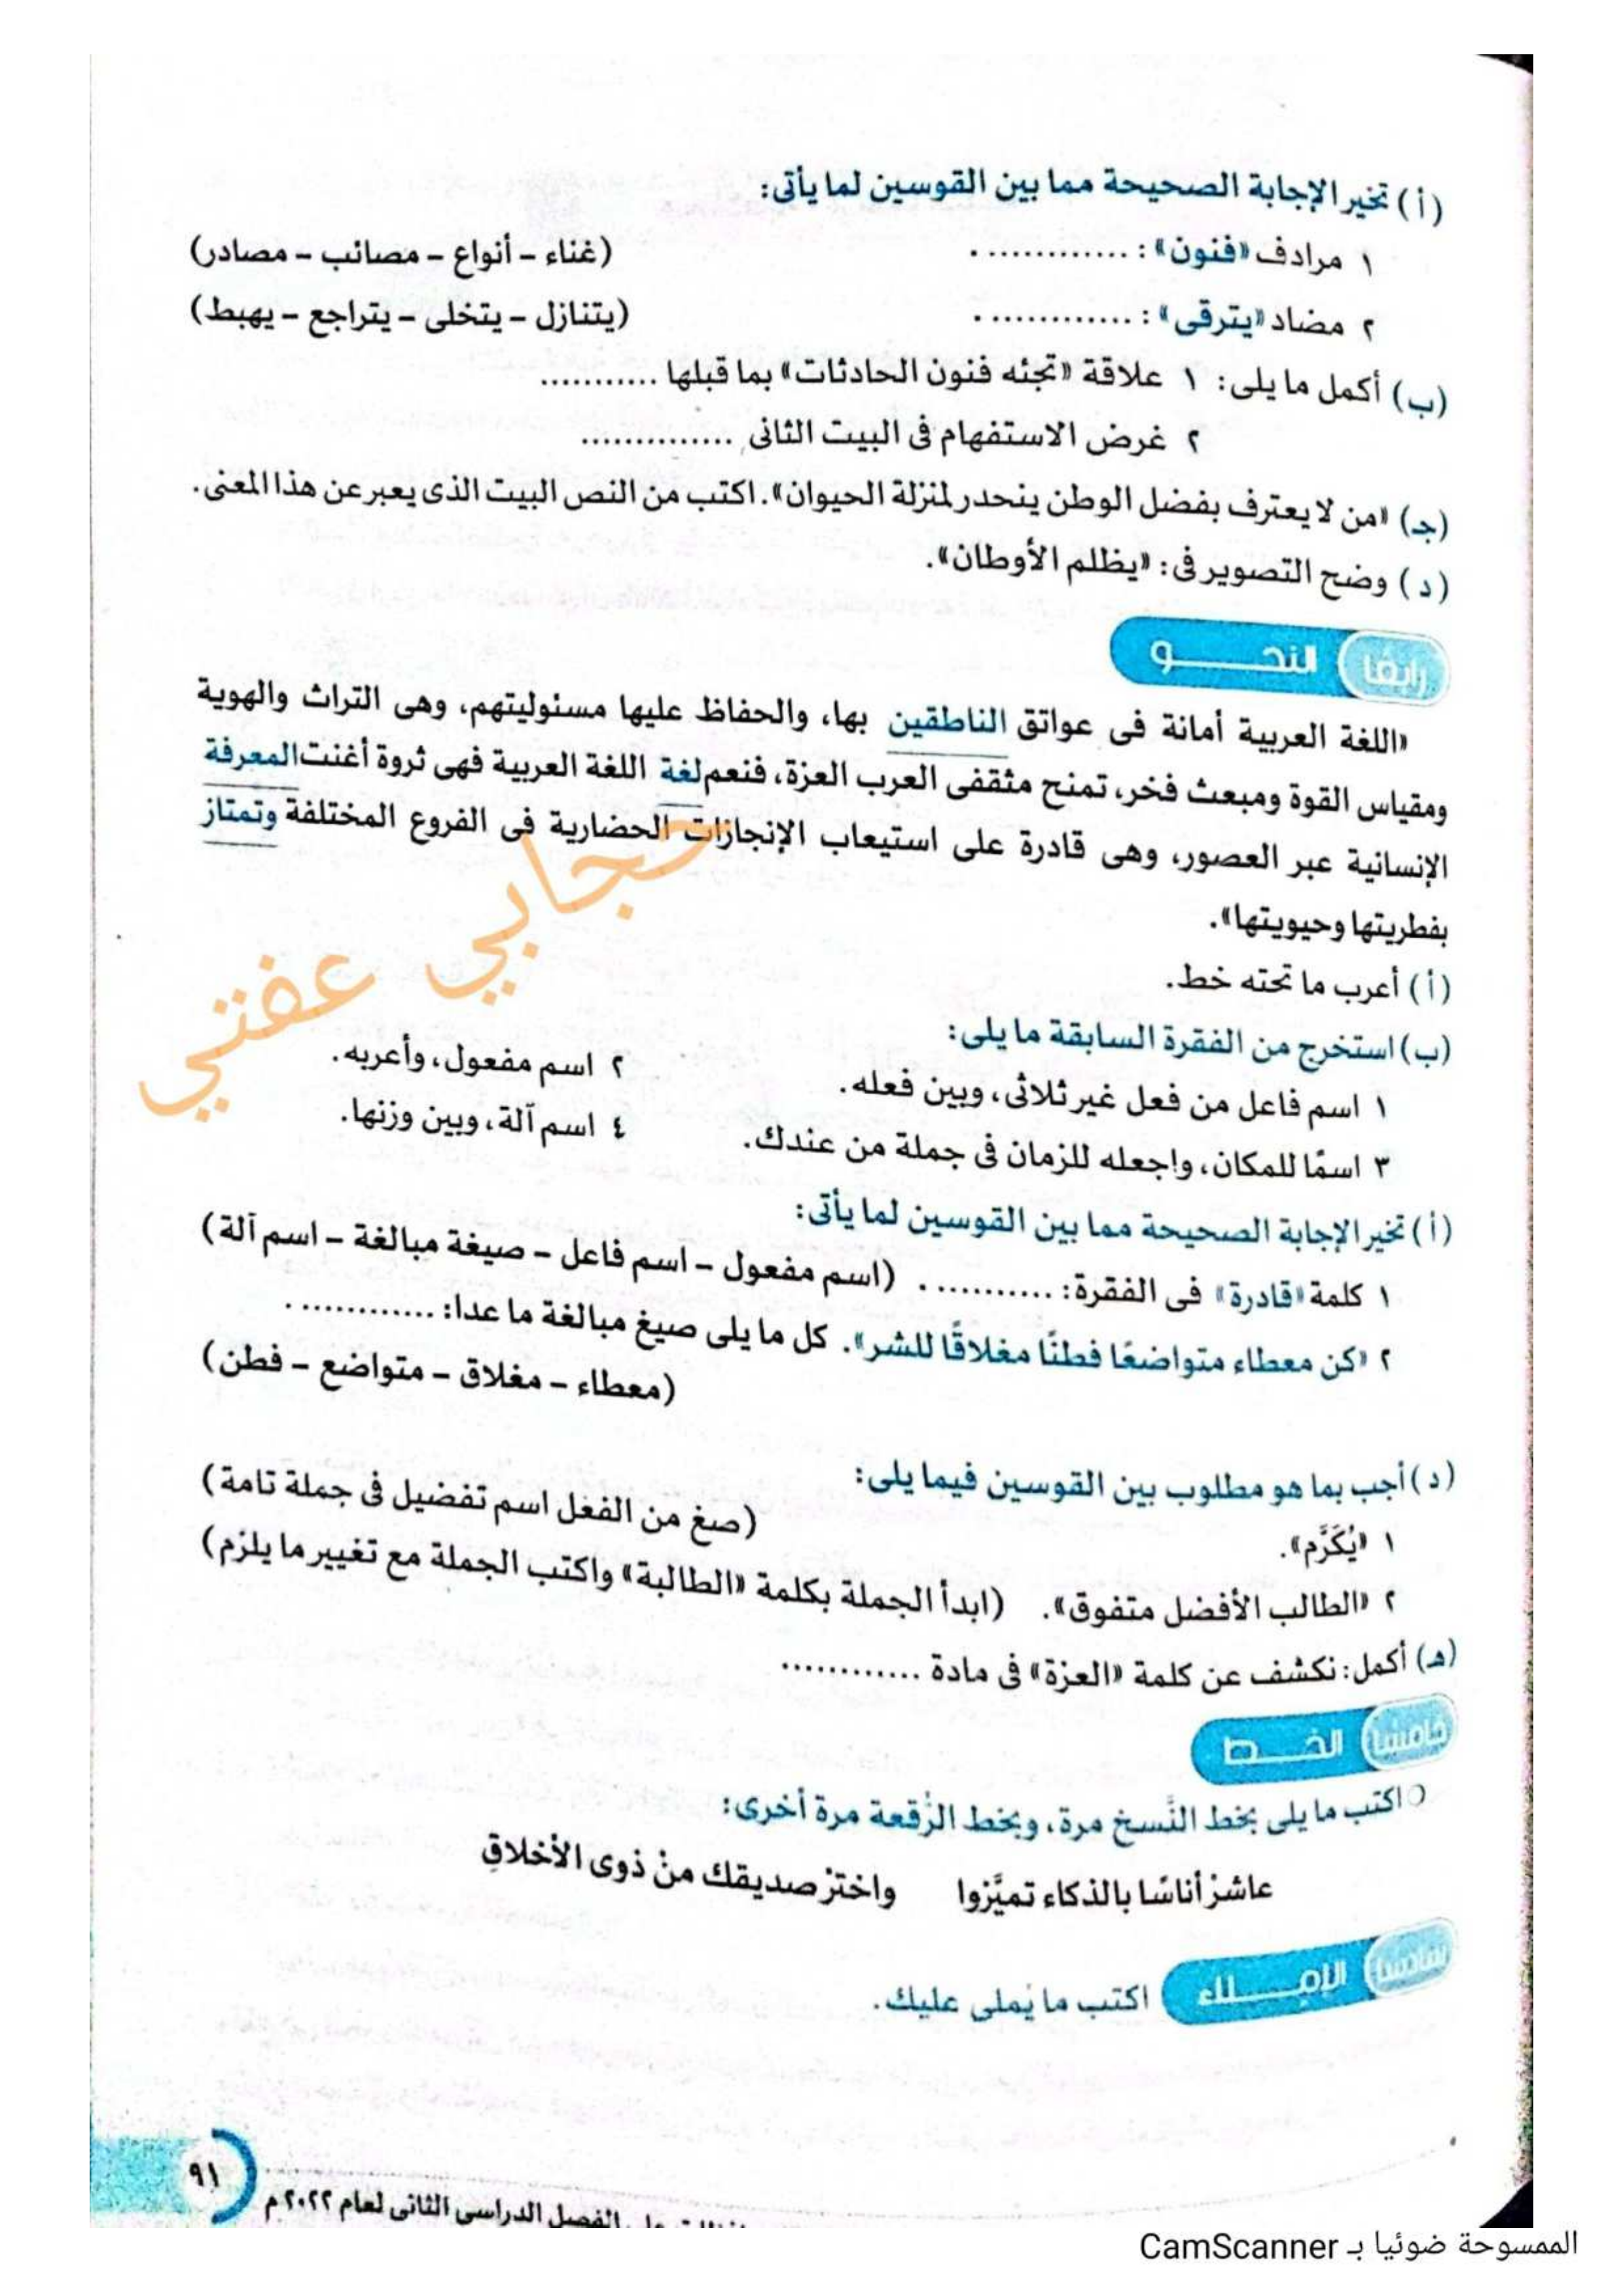 (أ) تخير الإجابة الصحيحة مما بين القوسين لما يأتى:
١ مرادف «فنون»: ............. . (غناء – أنواع – مصائب – مصادر)
٢ مضاد «يترقى»: ............. . (يتنازل – يتخلى – يتراجع – يهبط)
(ب) أكمل ما يلى: ١ علاقة «تجئه فنون الحادثات» بما قبلها ...........
٢ غرض الاستفهام فى البيت الثانى ..............
(جـ) «من لا يعترف بفضل الوطن ينحدر لمنزلة الحيوان». اكتب من النص البيت الذى يعبر عن هذا المعنى.
(د) وضح التصوير فى: «يظلم الأوطان».
رابعًا النحـــــو
«اللغة العربية أمانة فى عواتق الناطقين بها، والحفاظ عليها مسئوليتهم، وهى التراث والهوية
ومقياس القوة ومبعث فخر، تمنح مثقفى العرب العزة، فنعم لغة اللغة العربية فهى ثروة أغنت المعرفة
الإنسانية عبر العصور، وهى قادرة على استيعاب الإنجازات الحضارية فى الفروع المختلفة وتمتاز
بفطريتها وحيويتها».
حجابي عفتي
(أ) أعرب ما تحته خط.
(ب) استخرج من الفقرة السابقة ما يلى:
١ اسم فاعل من فعل غير ثلاثى، وبين فعله. ٢ اسم مفعول، وأعربه.
٣ اسمًا للمكان، واجعله للزمان فى جملة من عندك. ٤ اسم آلة، وبين وزنها.
(أ) تخير الإجابة الصحيحة مما بين القوسين لما يأتى:
١ كلمة «قادرة» فى الفقرة: ........... . (اسم مفعول – اسم فاعل – صيغة مبالغة – اسم آلة)
٢ «كن معطاء متواضعًا فطنًا مغلاقًا للشر». كل ما يلى صيغ مبالغة ما عدا: ............ .
(معطاء – مغلاق – متواضع – فطن)
(د) أجب بما هو مطلوب بين القوسين فيما يلى:
١ «يُكَرَّم». (صغ من الفعل اسم تفضيل فى جملة تامة)
٢ «الطالب الأفضل متفوق». (ابدأ الجملة بكلمة «الطالبة» واكتب الجملة مع تغيير ما يلزم)
(هـ) أكمل: نكشف عن كلمة «العزة» فى مادة ............
خامسًا الخــــط
اكتب ما يلى بخط النَّسخ مرة، وبخط الرُّقعة مرة أخرى:
عاشرْ أناسًا بالذكاء تميَّزوا واخترْ صديقك منْ ذوى الأخلاقِ
الإمـــــلاء اكتب ما يُملى عليك.
٩١
الفصل الدراسى الثانى لعام ٢٠٢٢م
الممسوحة ضوئيا بـ CamScanner